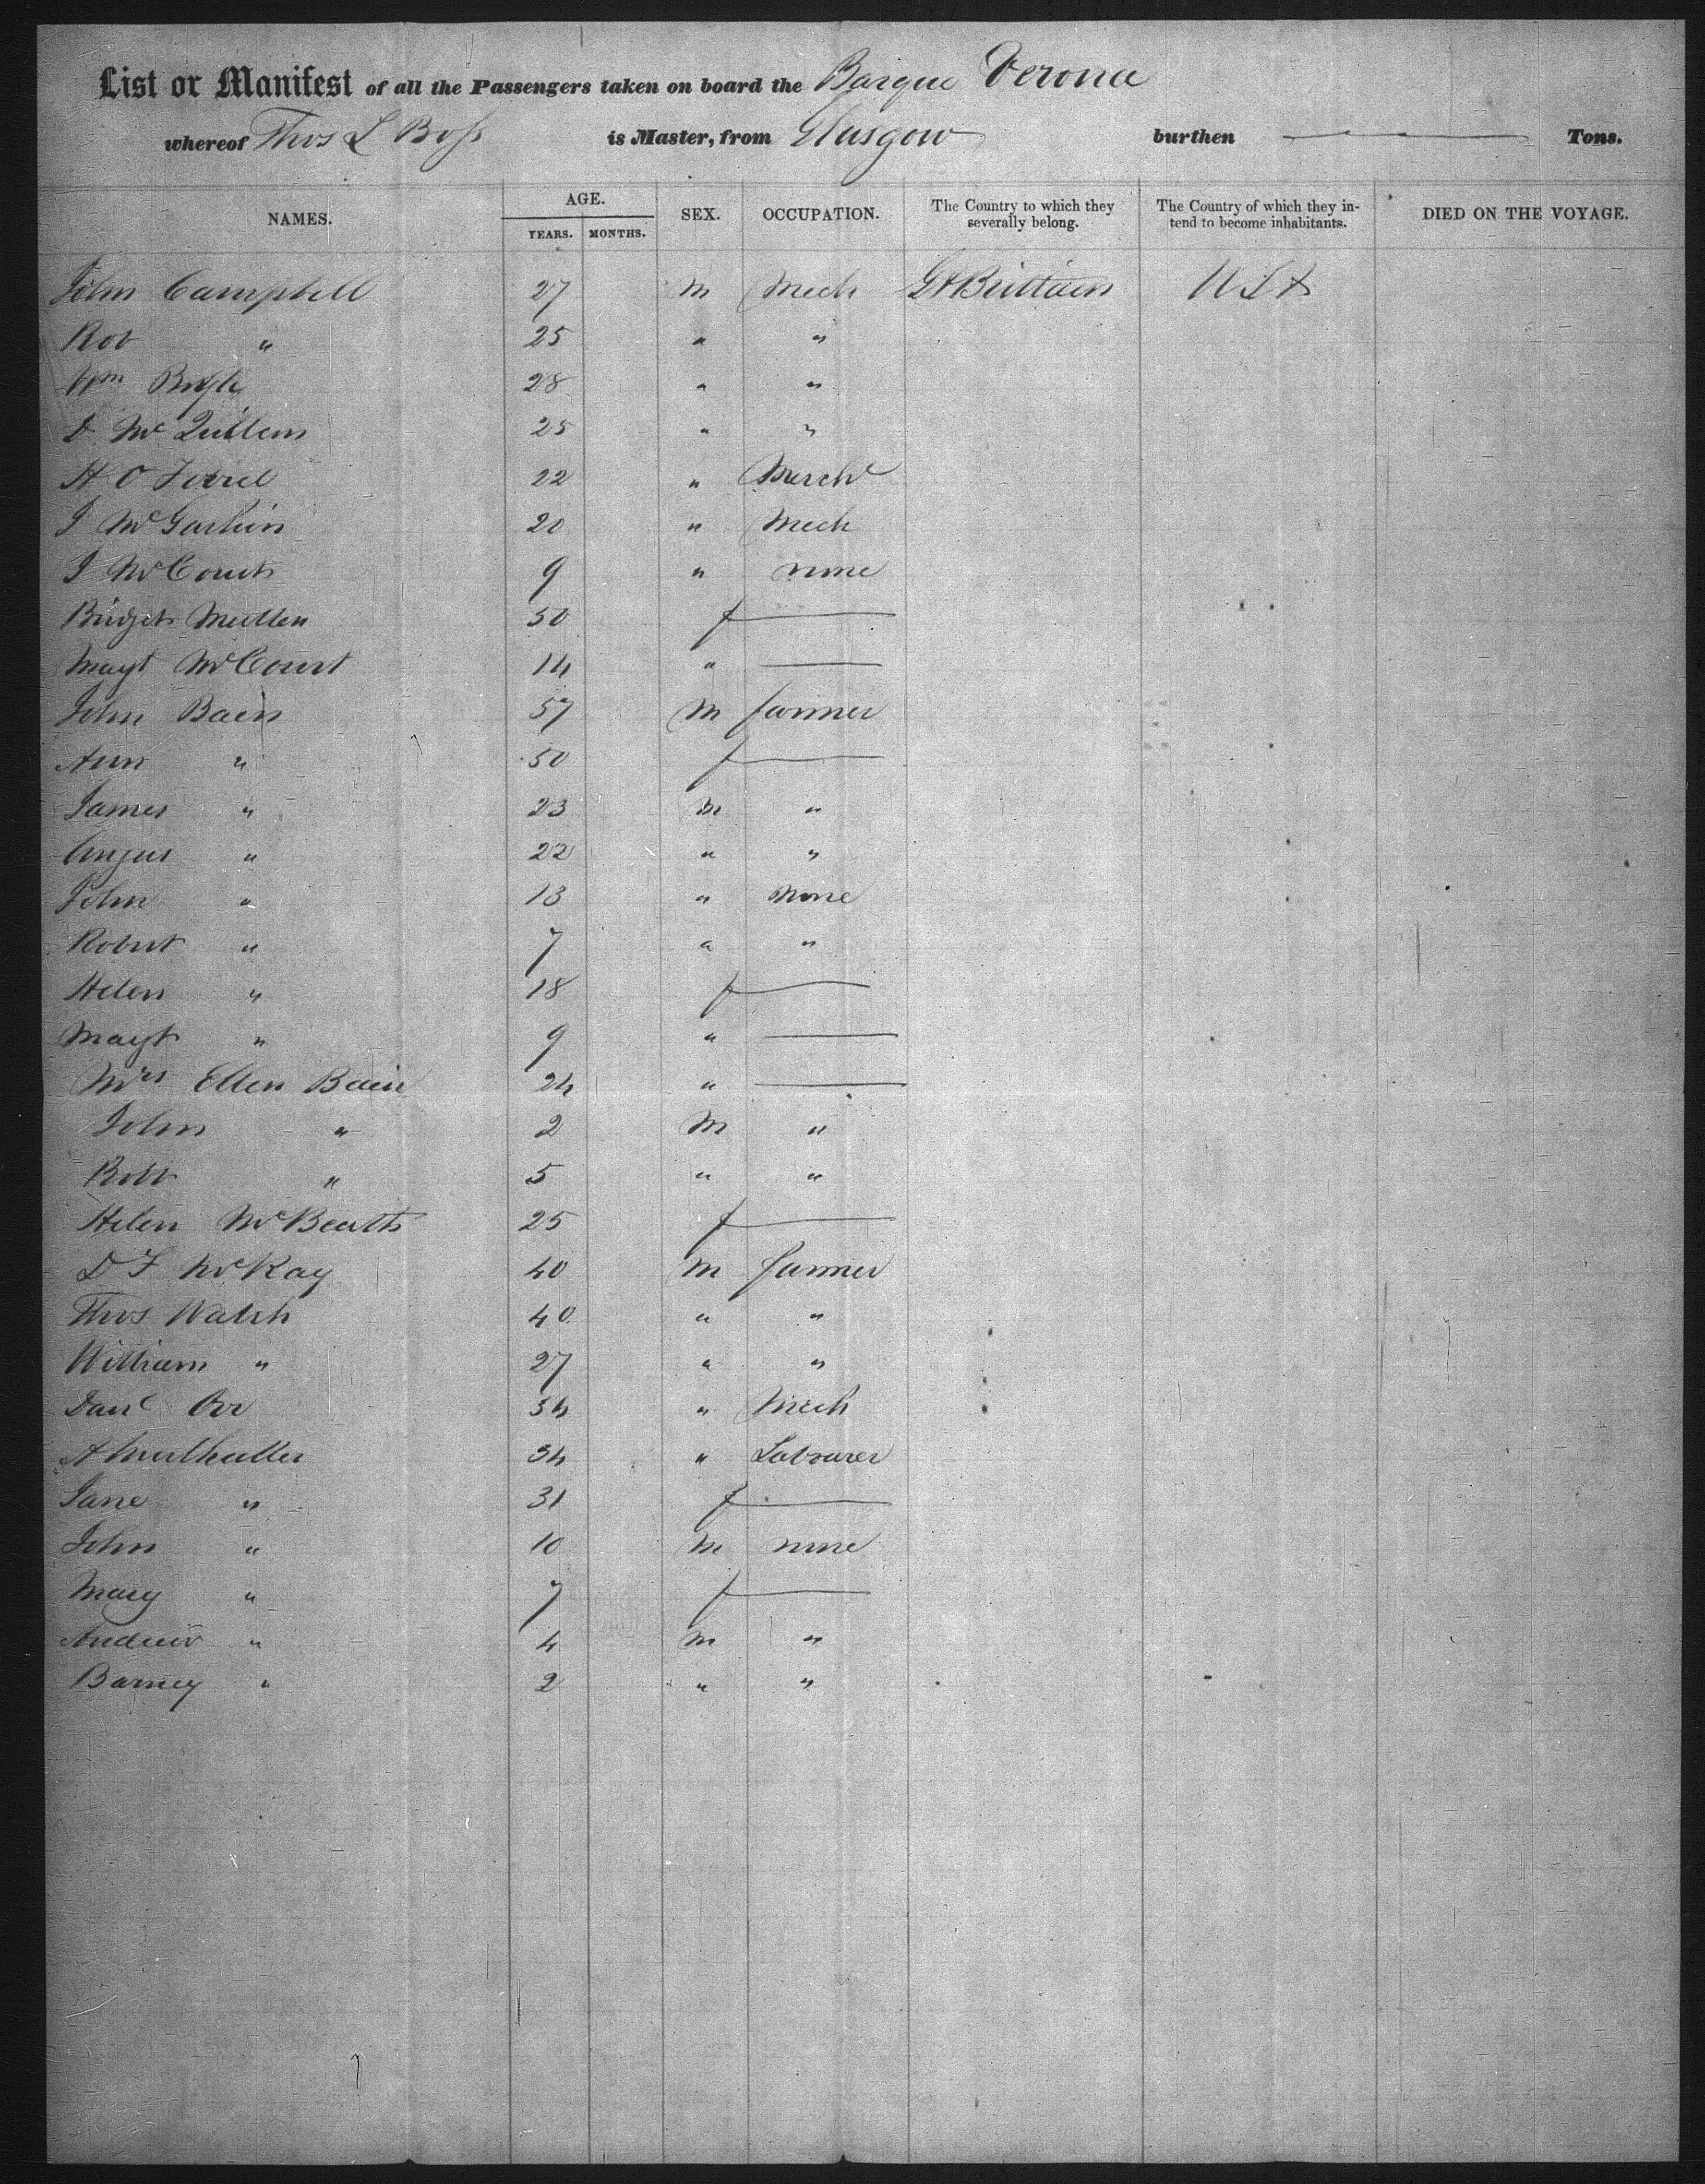 List or Manifest of all the Passengers taken on board the Barque Verona
whereof Thos L Boss is Master, from Glasgow burthen — Tons.
NAMES. AGE. YEARS. MONTHS. SEX. OCCUPATION. The Country to which they severally belong. The Country of which they intend to become inhabitants. DIED ON THE VOYAGE.
John Campbell 27 M Mech Gt Brittain U S A
Rob " 25 " "
Wm Boyle 28 " "
D Mc Quillem 25 " "
H O Ferrel 22 " Mercht
J Mc 20 " Mech
J McCourt 9 " none
Bridget Mullen 50 f —
Magt McCourt 14 " —
John Bain 57 M farmer
Ann " 50 f —
James " 23 m "
Angus " 22 " "
John " 13 " none
Robert " 7 " "
Helen " 18 f —
Magt " 9 " —
Mrs Ellen Bain 24 " —
John " 2 M "
Robt " 5 " "
Helen McBeath 25 f —
D F McKay 40 M farmer
Thos Walsh 40 " "
William " 27 " "
Danl Orr 34 " Mech
A 34 " Labourer
Jane " 31 f —
John " 10 M none
Mary " 7 f —
Andrew " 4 m "
Barney " 2 " "